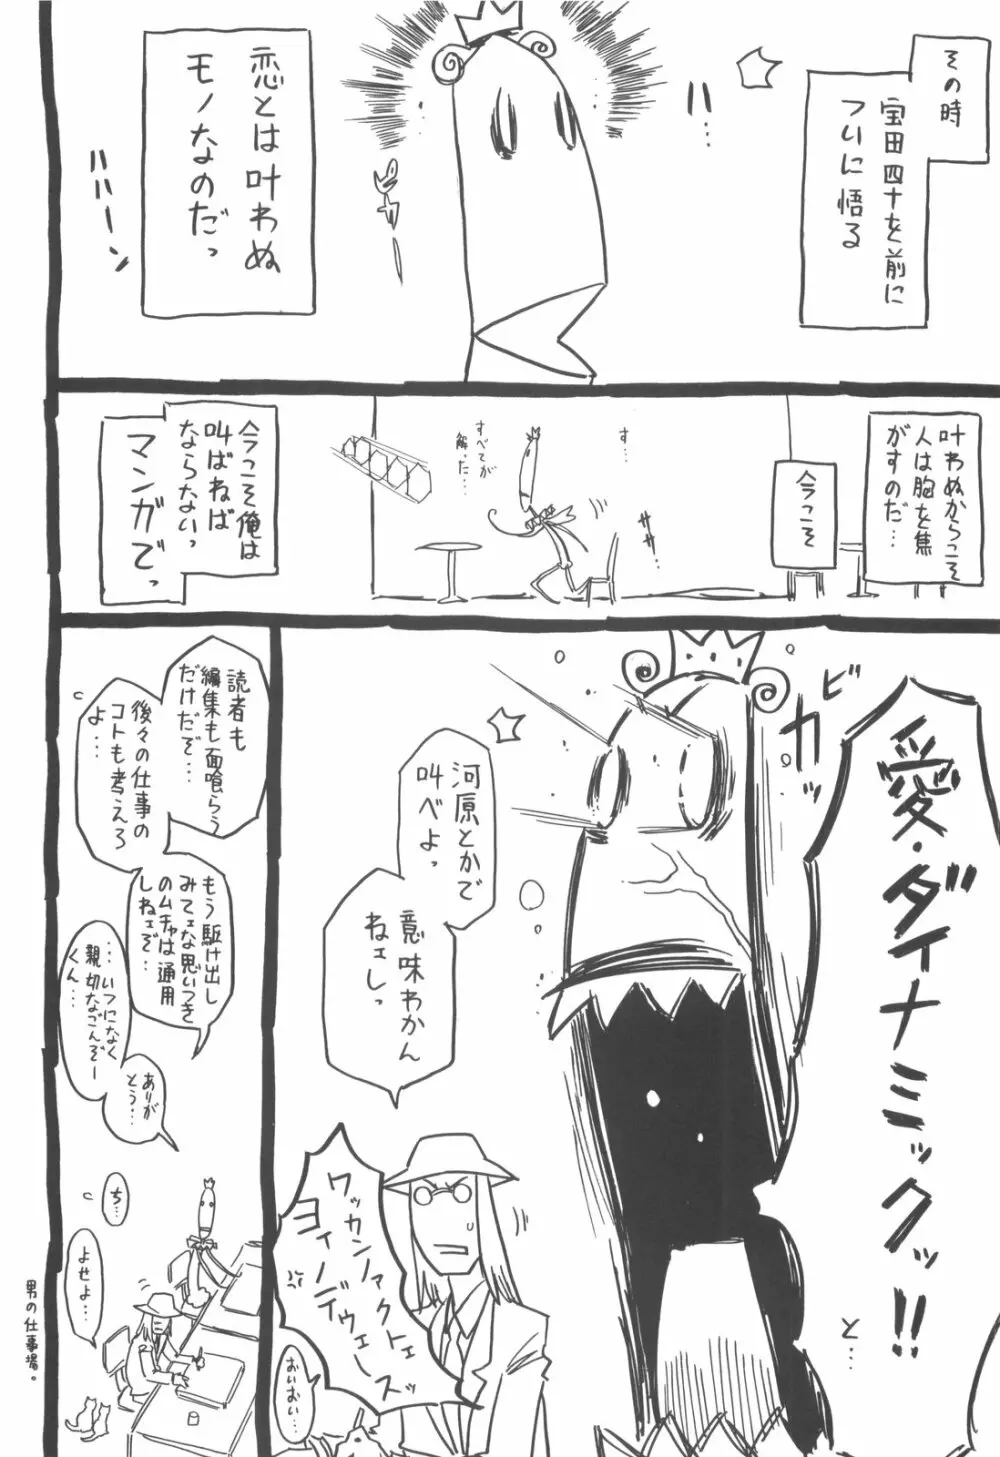 その時
宝田四十を前に
ついに悟る
恋とは叶わぬ
モノなのだっ
ハハーン
叶わぬからこそ
人は胸を焦
がすのだ…
今こそ
す…
ササ…
すべてが
解った…
今こそ俺は
叫ばねば
ならないっ
マンガでっ
ビ
カ
愛・ダイナミックッ!!
と…
河原とかで
叫べよっ
意味わかん
ねェしっ
ワッカンファクトェ
ヨイノデウェースッ
おいおい…
読者も
編集も面喰らう
だけだぞ…
後々の仕事の
コトも考えろ
よ…
もう駆け出し
みてェな思いつき
のムチャは通用
しねェぞ…
…いつになく
親切なごんぞー
くん…
ありが
とう…
ち…
よせよ…
男の仕事場。